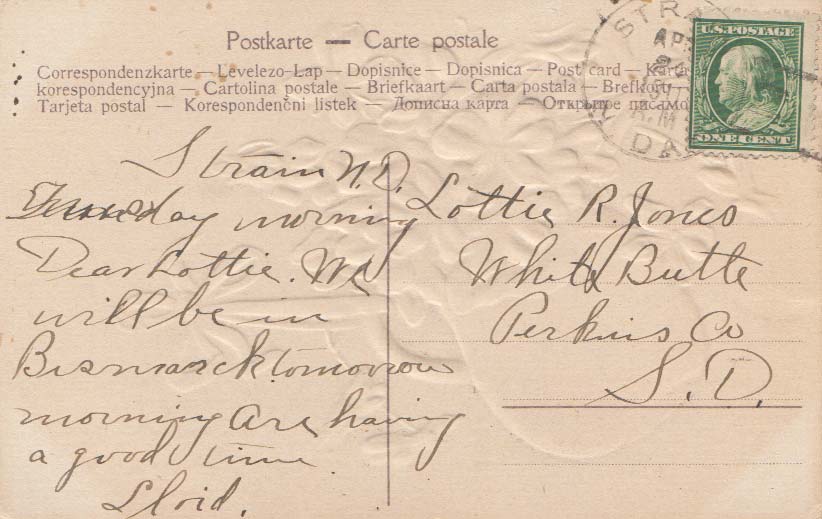 Postkarte — Carte postale
Correspondenzkarte — Levelezo-Lap — Dopisnice — Dopisnica — Post card — Karta
korespondencyjna — Cartolina postale — Briefkaart — Carta postala — Brefkort —
Tarjeta postal — Korespondenčni listek — Дописна карта — Открытое писамо
STR
AP
A.M
DA
U.S. POSTAGE
ONE CENT
Strain N.D.
day morning
Dear Lottie. We
will be in
Bismarck tomorrow
morning are having
a good time
Lloid.
Lottie R. Jones
White Butte
Perkins Co
S.D.